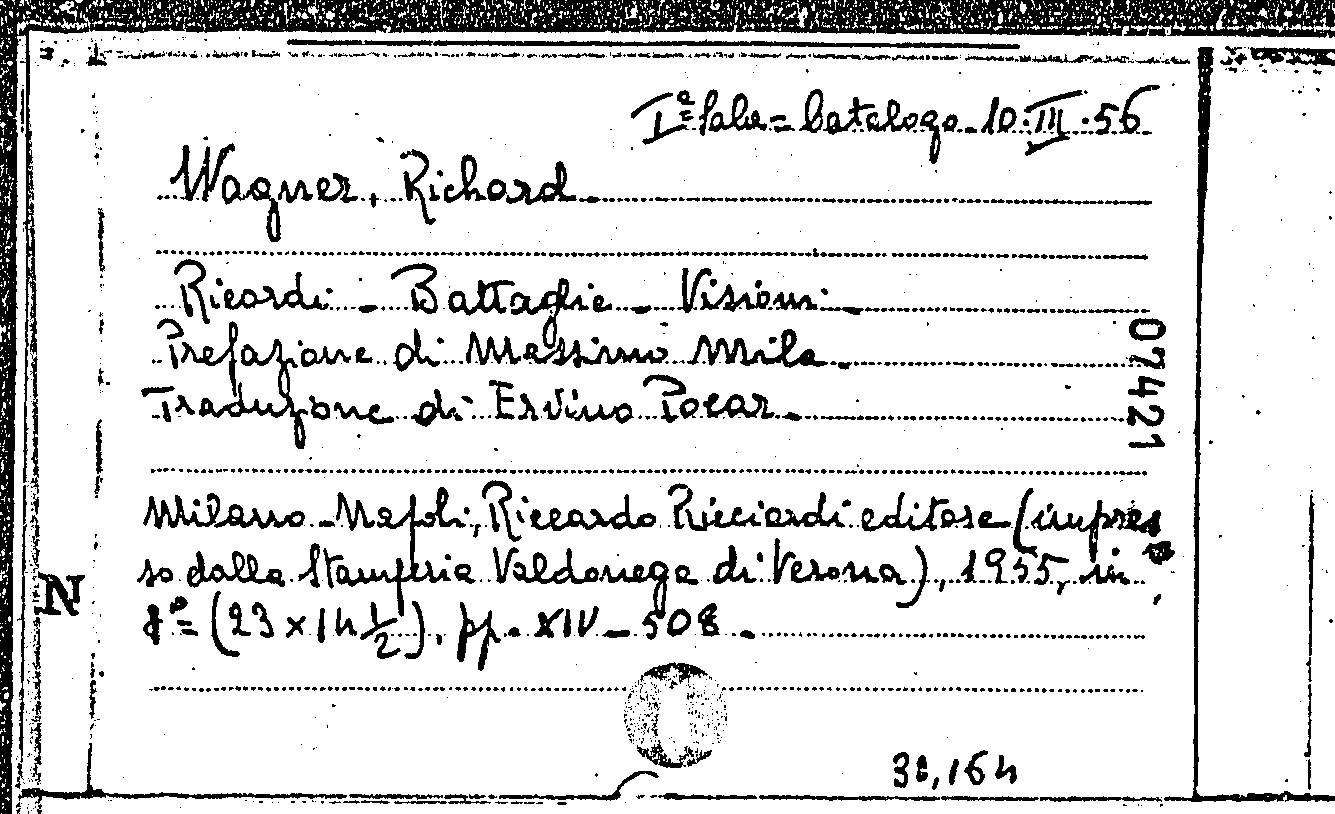 Iª Sala = Catalogo - 10 · III · 56
Wagner, Richard -
Ricordi - Battaglie - Visioni -
Prefazione di Massimo Mila -
Traduzione di Ervino Pocar -
07421
Milano - Napoli, Riccardo Ricciardi editore (impres
so dalla Stamperia Valdonega di Verona), 1955, in
N
8º = (23 x 14 1/2), pp. XIV - 508 -
38,164